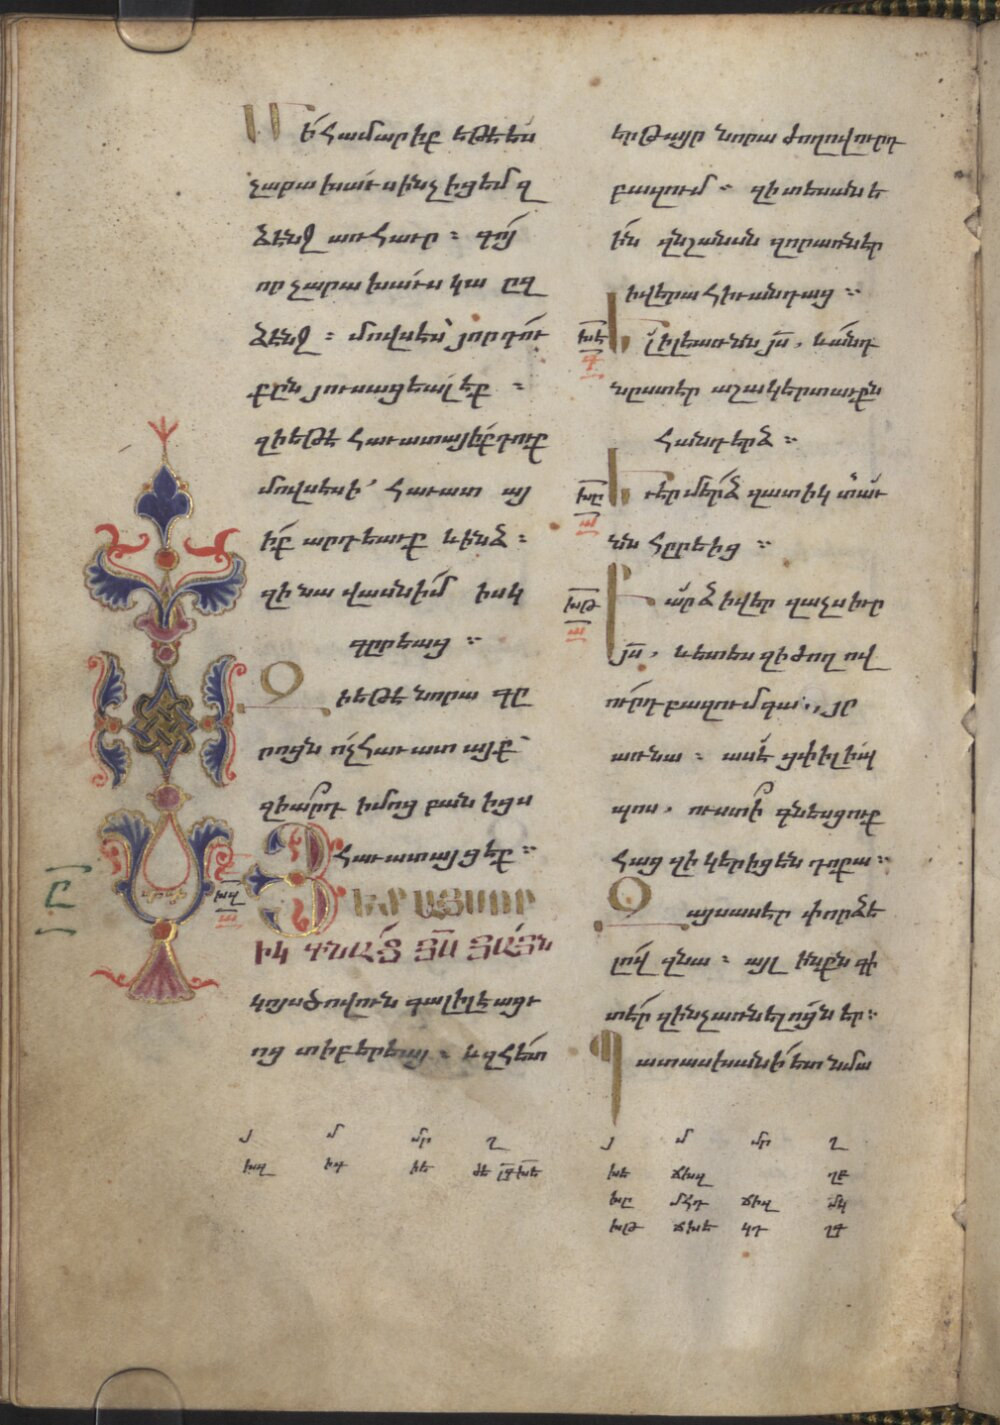 Մի համարիք եթե ես
չարախաւսինչ իցեմ զ
ձէնջ առ հաւր ։ գոյ
որ չարախաւս կա ըզ
ձէնջ ։ մովսես յոր դու
քըն յուսացեալ էք ։
զի եթէ հաւատայիք դուք
մովսեսի՝ հաւատ այ
իք արդեաւք և ինձ ։
զի նա վասն իմ իսկ
գըրեաց ։
Զի եթէ նորա գը
րոցն ոչ հաւատ այք՝
զիարդ իմոց բանիցս
հաւատայցէք ։
Յետ այսոր
իկ գնաց յս յայն
կոյս ծովուն գալիլեացւ
ոց տիբերեայ ։ և զհետ
երթայր նորա ժողովուրդ
բազում ։ զի տեսանե
ին զնշանսն զոր առներ
ի վերա հիւանդաց ։
Ել ի լեառն յս, և անդ
նըստեր աշակերտաւքն
հանդերձ ։
Եւ էր մերձ զատիկ տաւ
նն հըրեից ։
Ամբարձ ի վեր զաչս իւր
յս, և ետես զի ժողով
ուրդ բազում գայ առ
նա ։ ասէ ցփիլիպ
պոս, ուստի գնեսցուք
հաց զի կերիցեն դոքա ։
Զայս ասեր փորձե
լով զնա ։ այլ ինքն գի
տէր զինչ առնելոցն էր ։
Պատասխանի ետ նմա